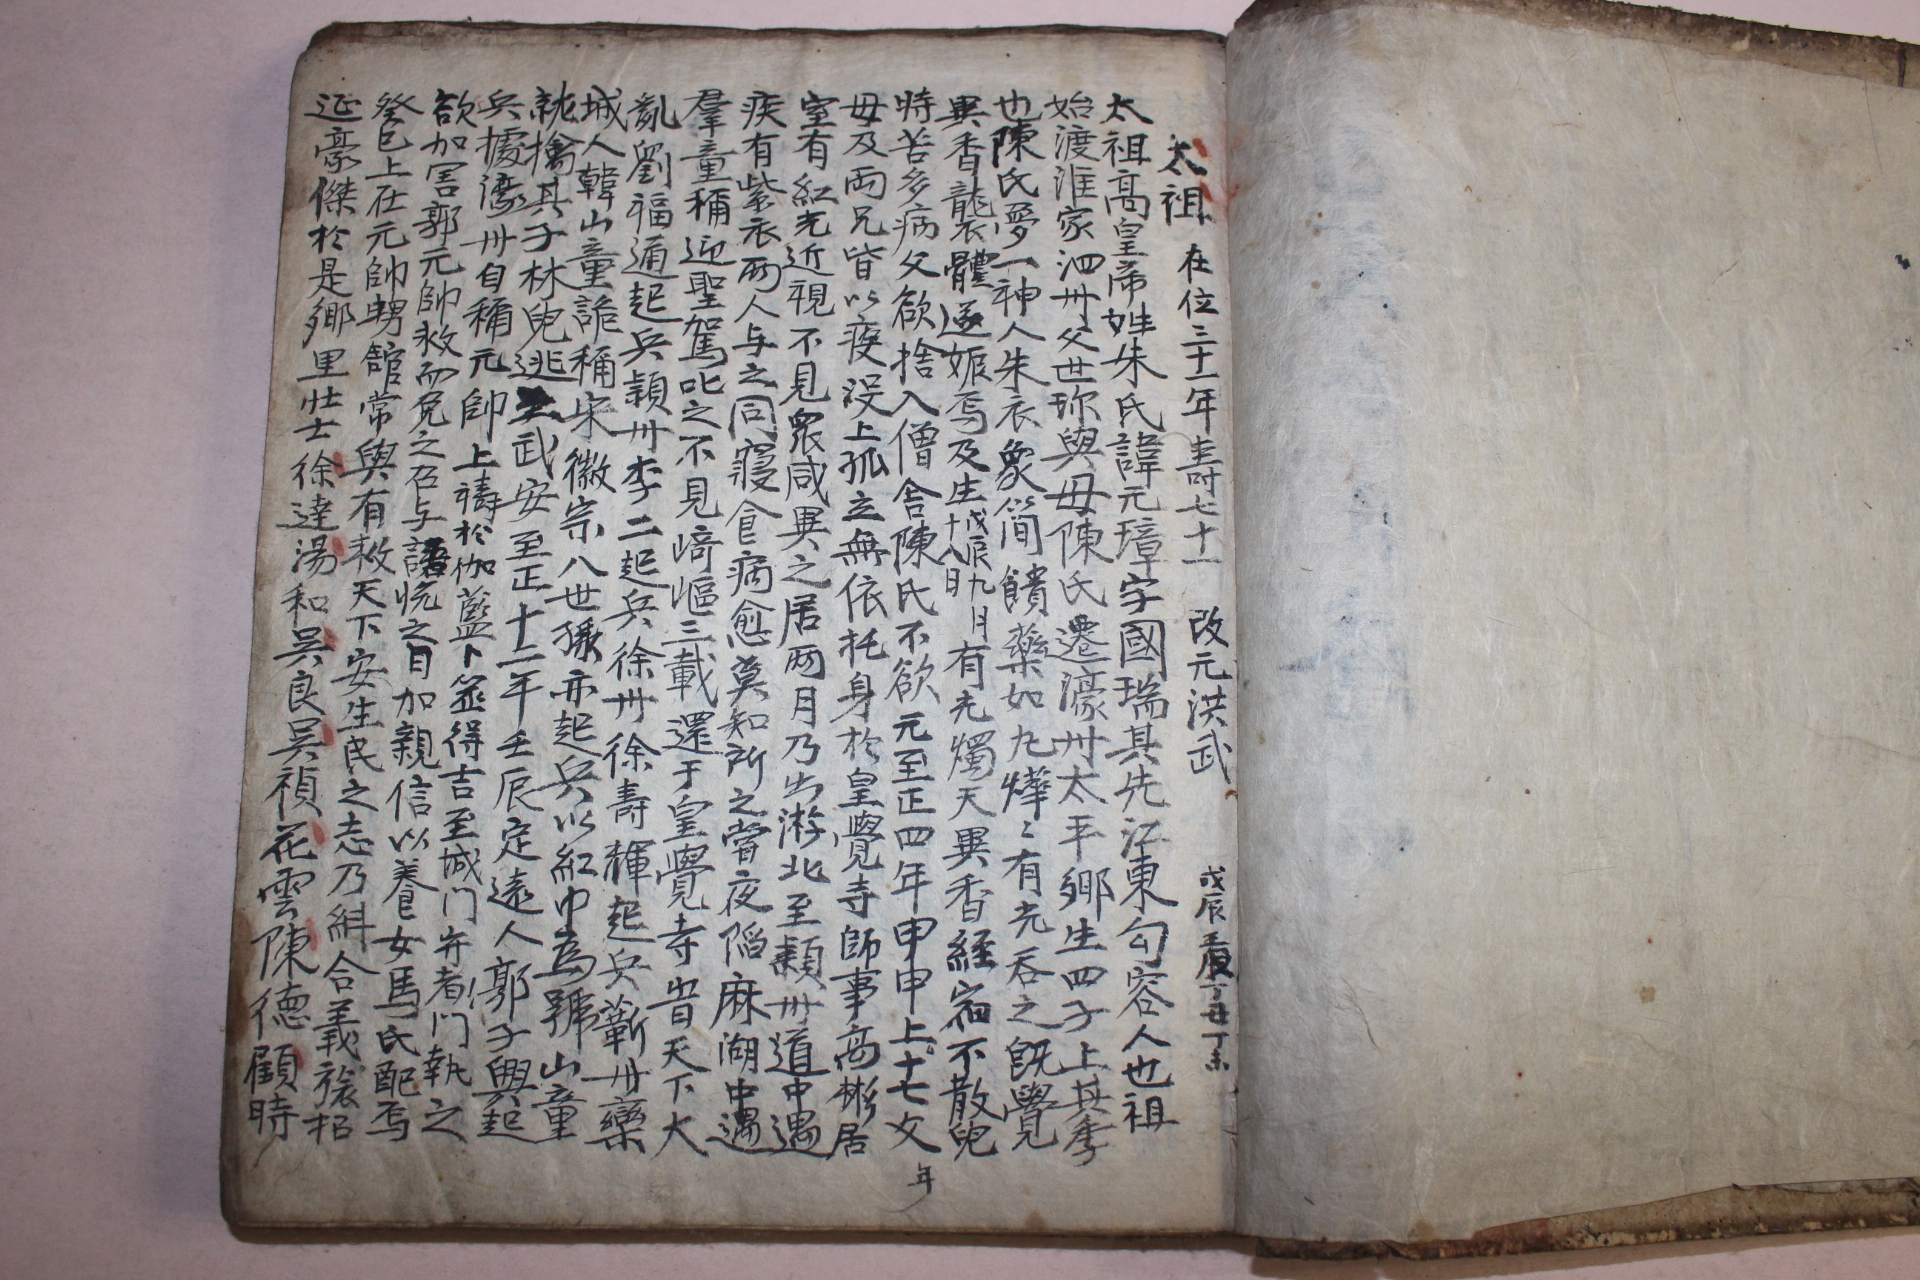 太祖 在位三十一年 壽七十一 改元洪武 戊辰 丁丑 丁未
太祖高皇帝姓朱氏諱元璋字國瑞其先江東勾容人也祖
始渡淮家泗州父世珎與母陳氏遷濠州太平鄉生四子上其季
也陳氏夢一神人朱衣象簡饋藥如丸燁〻有光吞之旣覺
異香襲體遂娠焉及生戊辰九月十八日有光燭天異香經宿不散兒
時苦多病父欲捨入僧舍陳氏不欲元至正四年甲申上年十七父
母及两兄皆以疫没上孤立無依托身於皇覺寺師事高彬居
室有紅光近視不見衆咸異之居两月乃出游北至潁州道中遇
疾有紫衣两人与之同寢食病愈莫知所之嘗夜陷麻湖中遇
羣童稱迎聖駕叱之不見崎嶇三載還于皇覺寺旹天下大
亂劉福通起兵潁州李二起兵徐州徐壽輝起兵蘄州欒
城人韓山童詭稱宋徽宗八世孫亦起兵以紅巾為號山童
就擒其子林兒逃武安至正十二年壬辰定遠人郭子興起
兵據濠州自稱元帥上禱於伽藍卜筮得吉至城门守者门執之
欲加害郭元帥救而免之召与語悅之日加親信以養女馬氏配焉
癸巳上在元帥甥舘常與有救天下安生民之志乃紏合義旅招
延豪傑於是鄉里壮士徐達湯和吳良吳禎花雲陳德顧時